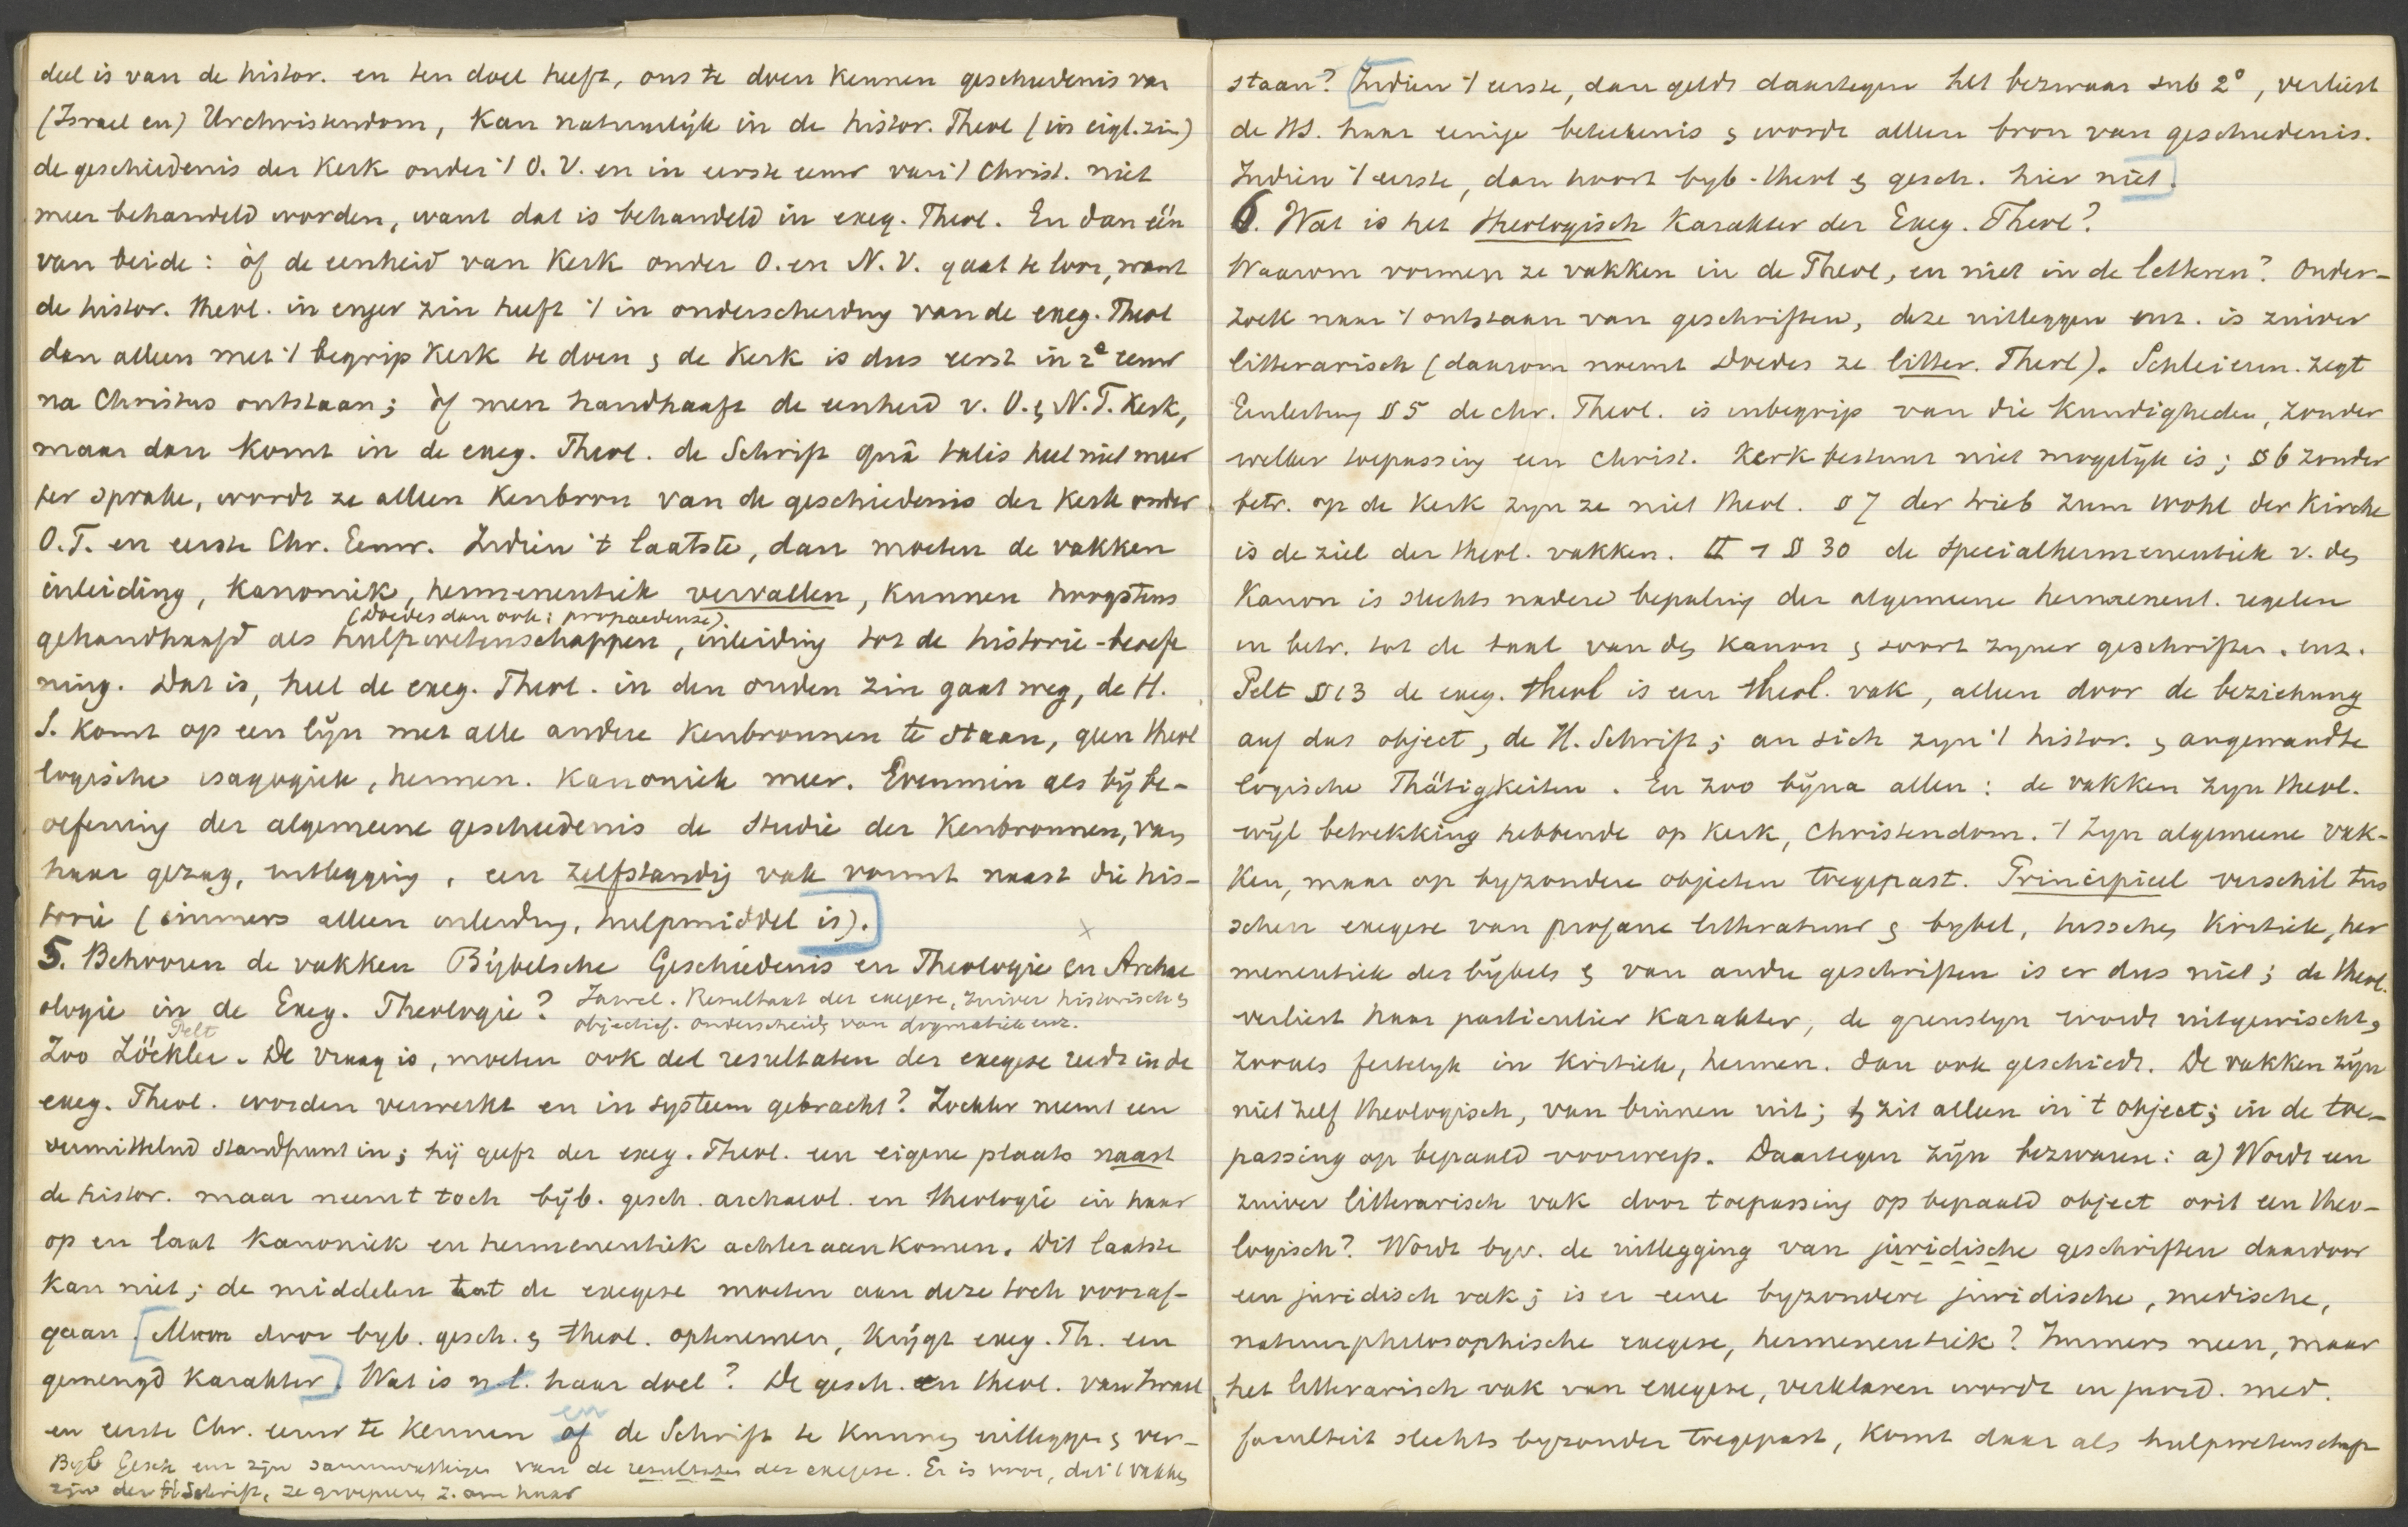 deel is van de histor. en ten doel heeft, ons te doen kennen geschiedenis van
(Israel en) Urchristendom, kan natuurlijk in de histor. Theol (in eigl. zin)
de geschiedenis der Kerk onder 't O. V. en in eerste eeuw van 't Christ. niet
meer behandeld worden, want dat is behandeld in exeg. Theol. En dan één
van beide: òf de eenheid van Kerk onder O. en N. V. gaat te loor, want
de histor. theol. in enger zin heeft 't in onderscheiding van de exeg. Theol
dan alleen met 't begrip Kerk te doen & de Kerk is dus eerst in 2e eeuw
na Christus ontstaan; òf men handhaaft de eenheid v. O. & N. T. Kerk,
maar dan komt in de exeg. Theol. de Schrift quâ talis heel niet meer
ter sprake, wordt ze alleen kenbron van de geschiedenis der Kerk onder
O. T. en eerste Chr. Eeuw. Indien 't laatste, dan moeten de vakken
inleiding, Kanoniek, hermeneutiek vervallen, kunnen hoogstens
(Doedes dan ook: propaedeuse)
gehandhaafd als hulpwetenschappen, inleiding tot de historie-beoefe
ning. Dat is, heel de exeg. Theol. in den ouden zin gaat weg, de H.
S. komt op een lijn met alle andere kenbronnen te staan, geen theol
logische isagogiek, hermen. kanoniek meer. Evenmin als bij be-
oefening der algemeene geschiedenis de studie der kenbronnen, van
haar gezag, uitlegging, een zelfstandig vak vormt naast die his-
torie (immers alleen inleiding, hulpmiddel is).
5. Behooren de vakken Bijbelsche Geschiedenis en Theologie en Archae
ologie in de Exeg. Theologie? Jawel. Resultaat der exegese, zuiver historisch &
objectief. onderscheid van dogmatiek enz.
Pelt
Zoo Zöckler. De vraag is, moeten ook del resultaten der exegese reeds in de
exeg. Theol. worden verwerkt en in systeem gebracht? Zockler neemt een
vermittelnd standpunt in; hij geeft der exeg. Theol. een eigene plaats naast
de histor. maar neemt toch bijb. gesch. archaeol. en theologie in haar
op en laat kanoniek en hermeneutiek achteraan komen. Dit laatste
kan niet; de middelen tot de exegese moeten aan deze toch vooraf-
gaan. [Maar door byb. gesch. & theol. opteнemen, krijgt exeg. Th. een
gemengd karakter]. Wat is nl. haar doel? De gesch. en theol. van Israel
en
en eerste Chr. eeuw te kennen of de Schrift te kunnen uitleggen & ver-
Byb Gesch enz zijn samenvattingen van de resultaten der exegese. Er is voor, dat 't vakken
zijn der H Schrift, ze groepeeren z. om haar
staan? [Indien 't eerste, dan geldt daartegen het bezwaar sub 2°, verliest
de HS. haar eenige beteekenis & wordt alleen bron van geschiedenis.
Indien 't eerste, dan hoort byb-theol & gesch. hier niet].
6. Wat is het theologisch karakter der Exeg. Theol?
Waarom vormen ze vakken in de Theol, en niet in de letteren? Onder-
zoek naar 't ontstaan van geschriften, deze uitleggen enz. is zuiver
litterarisch (daarom noemt Doedes ze litter. Theol). Schleierm. zegt
Einleitung § 5 de chr. Theol. is inbegrip van die kundigheden, zonder
welker toepassing een christ. Kerkbestuur niet mogelijk is; § 6 zonder
betr. op de Kerk zyn ze niet theol. § 7 der trieb zum wohl der Kirche
is de ziel der theol. vakken. II 1 § 30 de specialhermeneutiek v. den
Kanon is slechts nadere bepaling der algemeene hermeneut. regelen
in betr. tot de taal van den Kanon & soort zyner geschriften. enz.
Pelt § 13 de exeg. theol is een theol. vak, alleen door de beziehung
auf das object, de H. Schrift; an sich zyn 't histor. & angewandte
logische Thätigkeiten. En zoo bijna allen: de vakken zyn theol.
wyl betrekking hebbende op Kerk, Christendom. 't Zyn algemeene vak-
ken, maar op byzondere objecten toegepast. Principieel verschil tus
schen exegese van profane litteratuur & bybel, tusschen Kritiek, her
meneutiek des bijbels & van andre geschriften is er dus niet; de theol.
verliest haar particulier karakter, de grenslyn wordt uitgewischt,
zooals feitelyk in Kritiek, hermen. dan ook geschiedt. De vakken zijn
niet zelf theologisch, van binnen uit; 't zit alleen in 't object; in de toe-
passing op bepaald voorwerp. Daartegen zijn bezwaren: a) Wordt een
zuiver litterarisch vak door toepassing op bepaald object ooit een theo-
logisch? Wordt byv. de uitlegging van juridische geschriften daardoor
een juridisch vak; is er eene byzondere juridische, medische,
natuurphilosophische exegese, hermeneutiek? Immers neen, maar
het litterarisch vak van exegese, verklaren wordt in jurid. med.
faculteit slechts byzonder toegepast, komt daar als hulpwetenschap